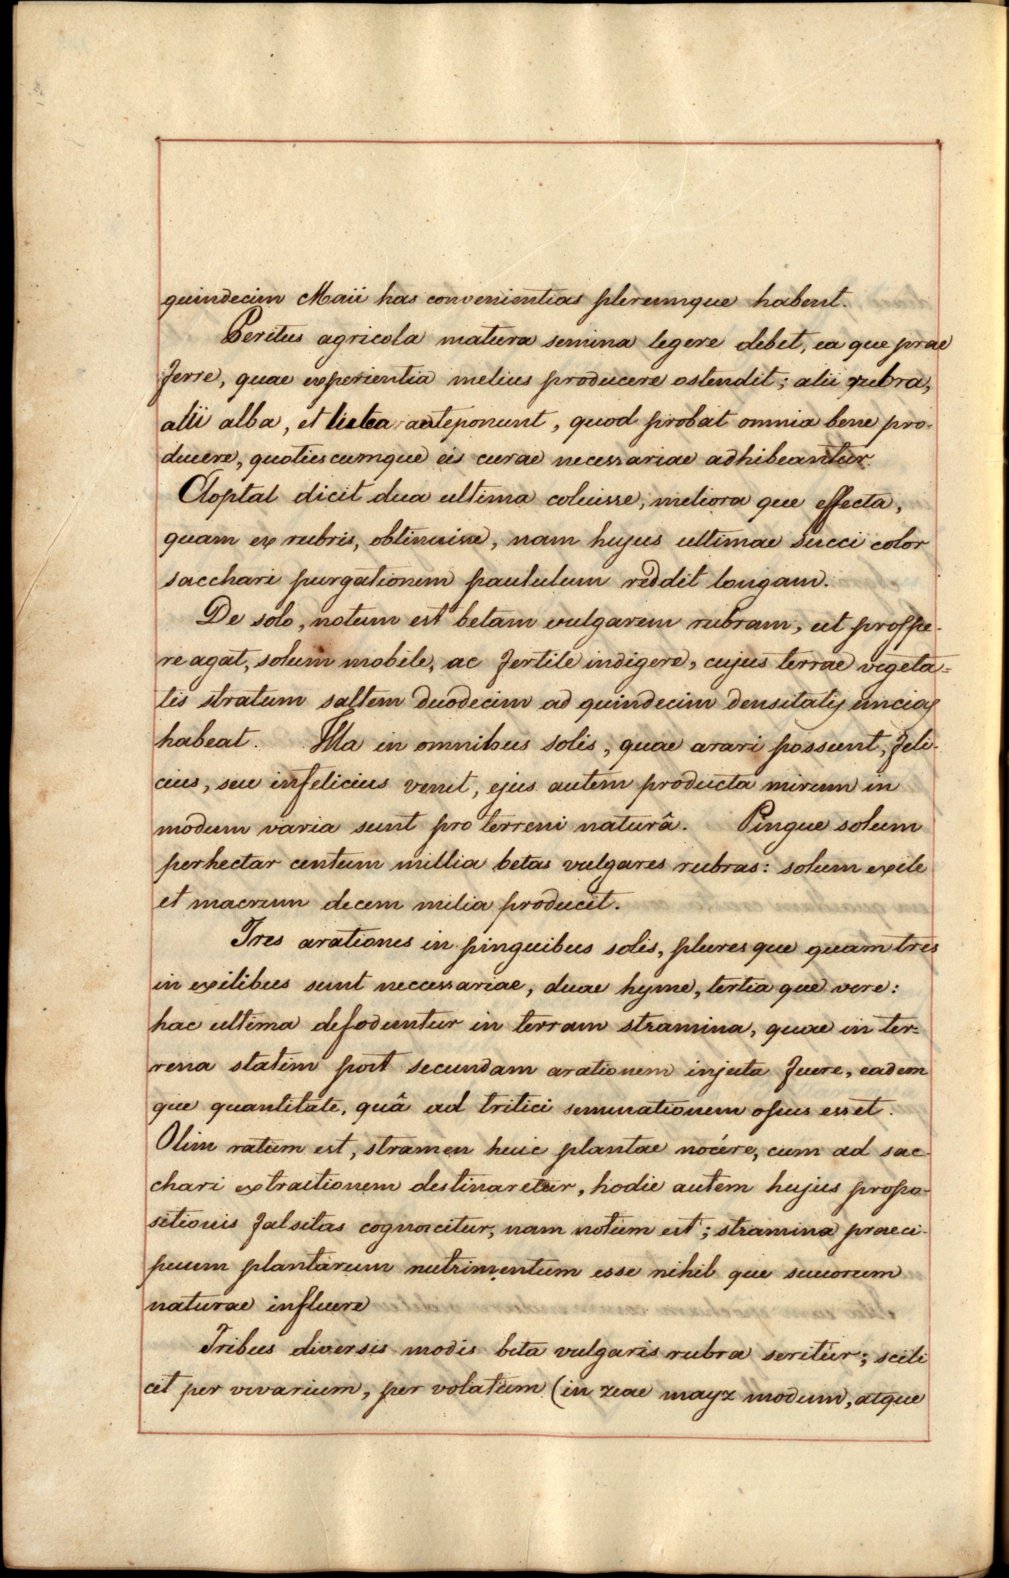 quindecim Maii has convenientias plerumque habent.
Peritus agricola matura semina legere debet, ea que prae
ferre, quae experientia melius producere ostendit; alii rubra,
alii alba, et lutea anteponunt, quod probat omnia bene pro-
ducere, quotiescumque eis curae necessariae adhibeantur.
Cloptal dicit dua ultima coluisse, meliora que effecta,
quam ex rubris, obtinuisse, nam hujus ultimae succi color
sacchari purgationem paululum reddit longam.
De solo, notum est betam vulgarem rubram, ut prospe-
re agat, solum mobile, ac fertile indigere, cujus terrae vegeta-
lis stratum saltem duodecim ad quindecim densitatis uncias
habeat. Illa in omnibus solis, quae arari possunt, feli-
cius, seu infelicius venit, ejus autem producta mirum in
modum varia sunt pro terreni naturâ. Pingue solum
perhectar centum millia betas vulgares rubras: solum exile
et macrum decem milia producit.
Tres arationes in pinguibus solis, plures que quam tres
in exilibus sunt neccessariae, duae hyme, tertia que vere:
hac ultima defoduntur in terram stramina, quae in ter-
rena statim post secundam arationem injecta fuere, eadem
que quantitate, quâ ad tritici seminationem opus esset.
Olim ratum est, stramen huic plantae nocére, cum ad sac-
chari extractionem destinaretur, hodie autem hujus propo-
sitionis falsitas cognoscitur, nam notum est; stramina praeci-
puum plantarum nutrimentum esse nihil que succorum
naturae influere
Tribus diversis modis beta vulgaris rubra seritur; scili
cet per vivarium, per volatum (in zeae mayz modum, atque